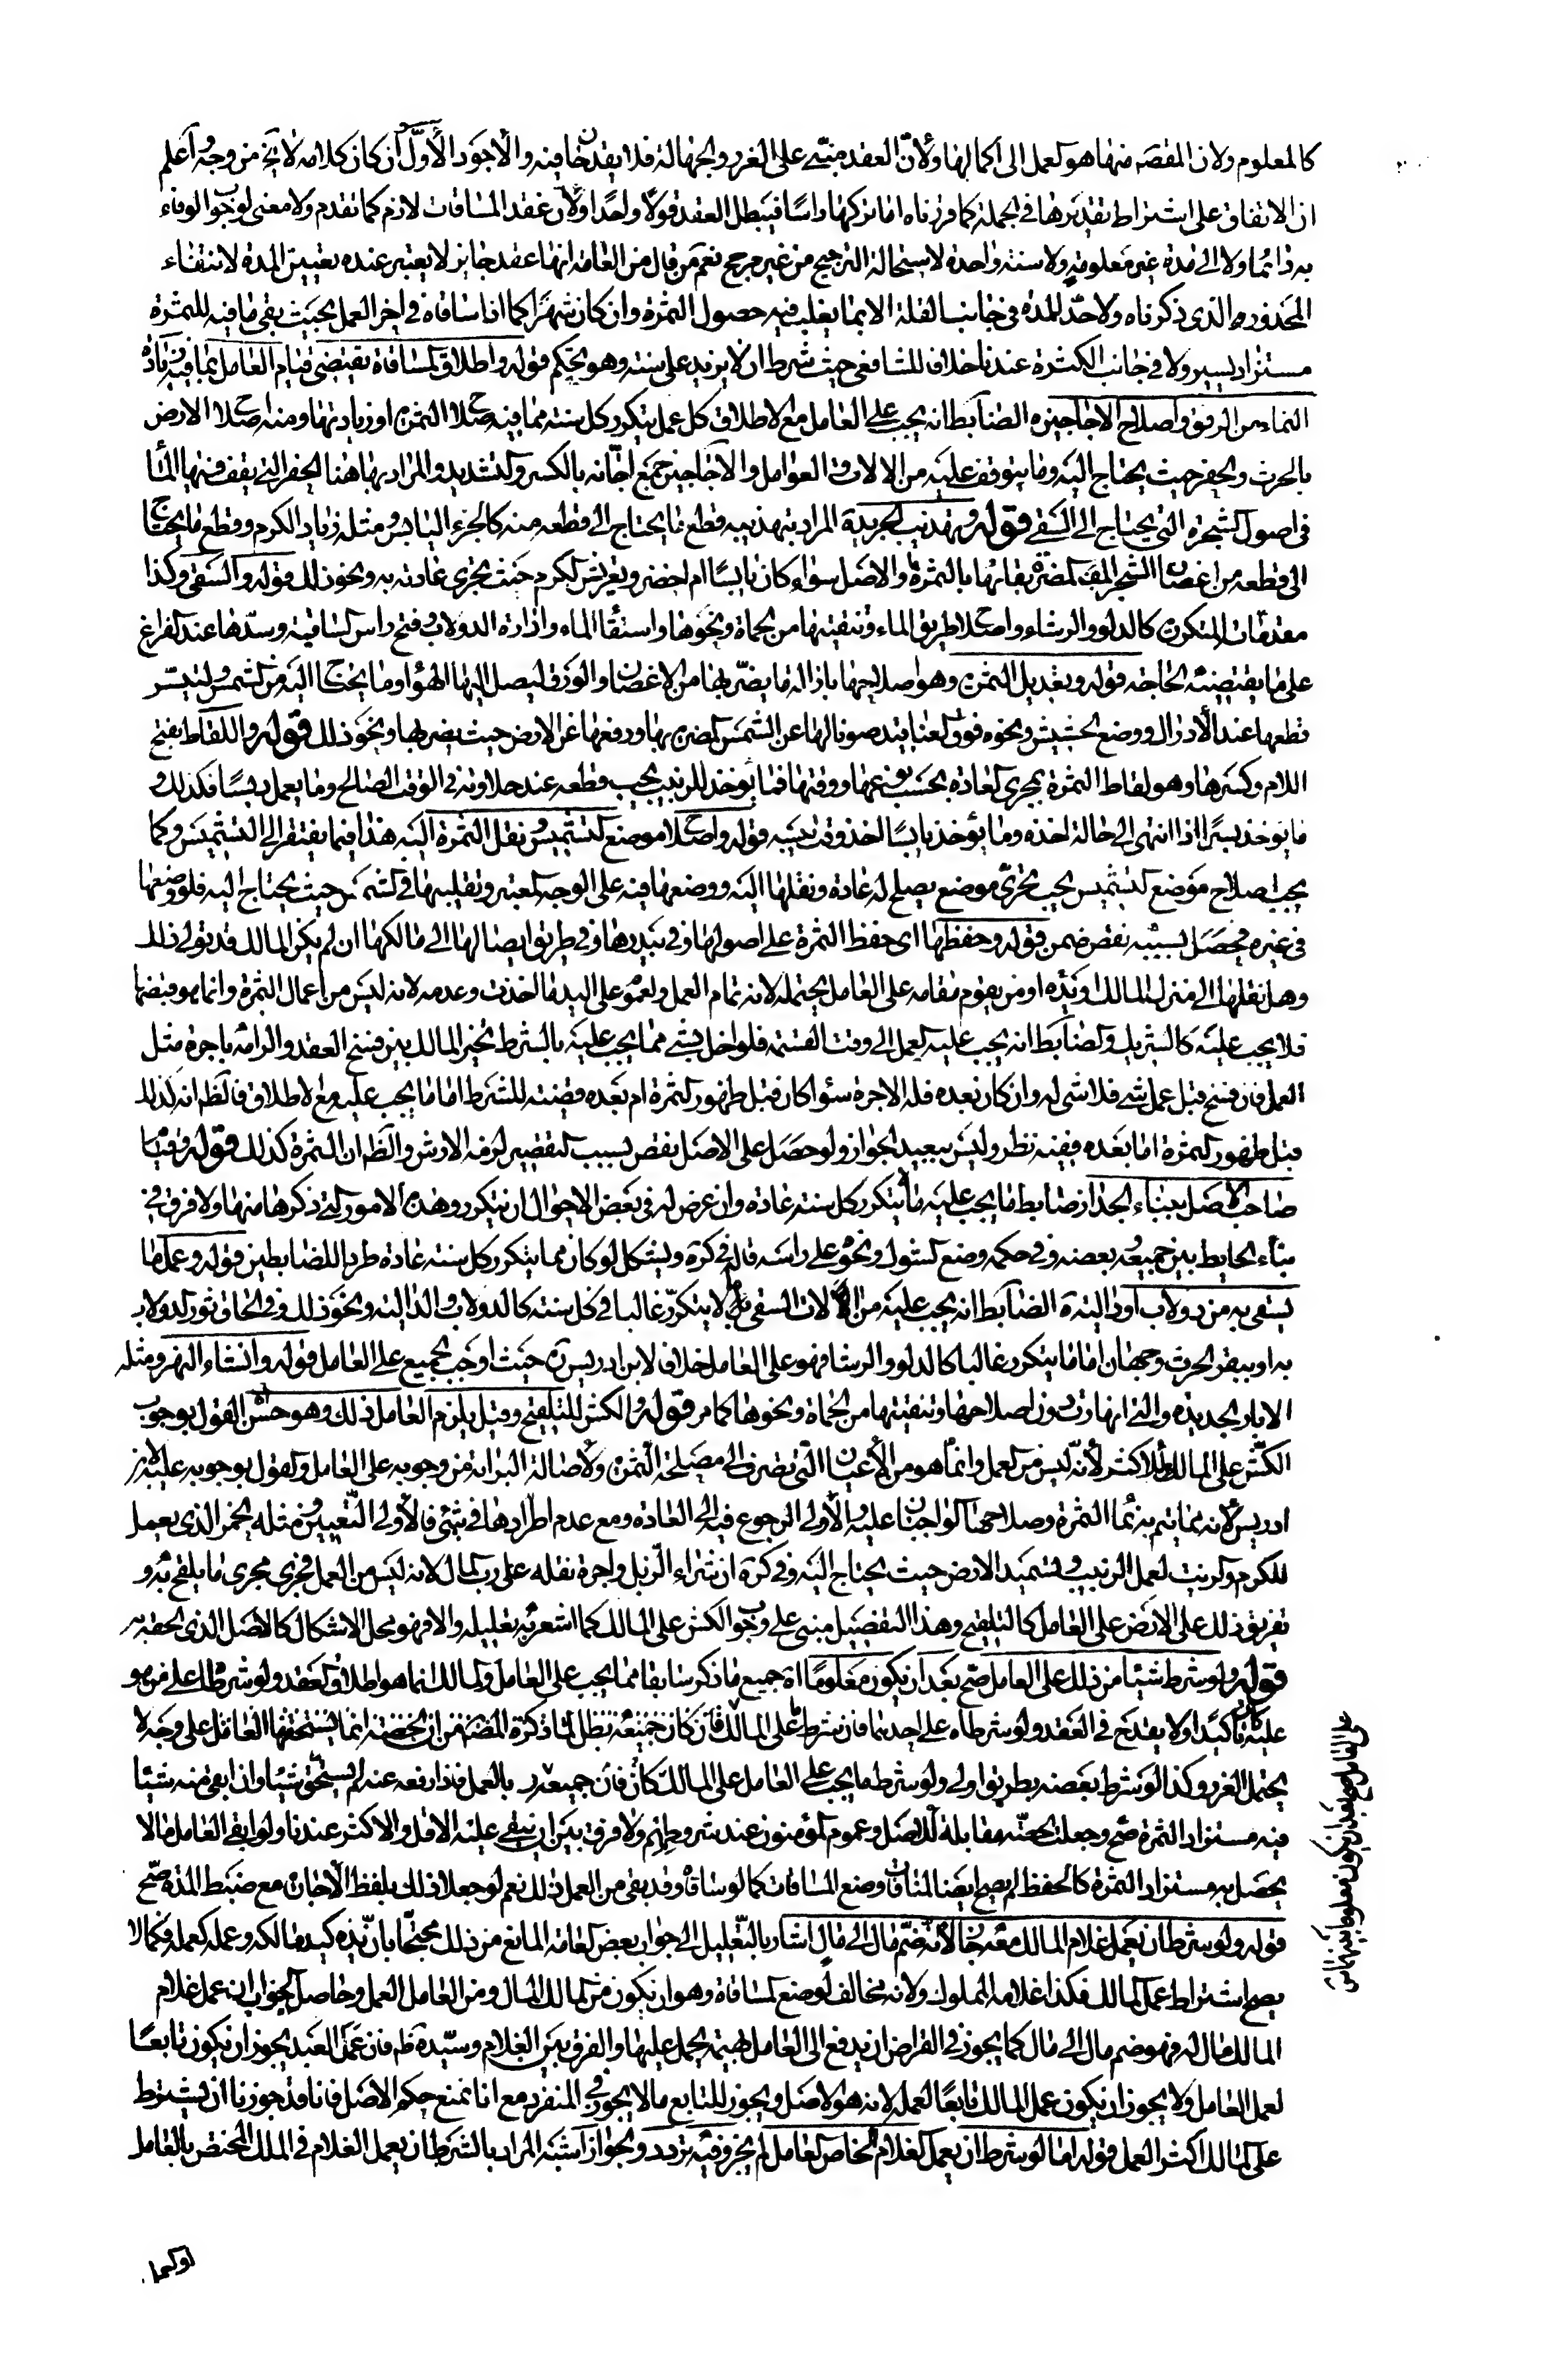 كالمعلوم ولان المقصد منها هو العمل الى اكمالها ولأنّ العقد مبنىّ على الغرر والجهالة فلا يقدحان فيه والاجود الأوّل وان كان كلامه لا يخ من وجه وأعلم
ان الاتفاق على اشتراط تقديرها في الجملة كما قررناه اما تركها راسًا فيبطل العقد قولًا واحدًا ولأن عقد المساقات لازم كما تقدم ولا معنى لوجوب الوفاء
به دائما ولا الى مدة غير معلومة ولا سنة واحدة لاستحالة الترجيح من غير مرجح نعم من قال من العامة انها عقد جايز لا يعتبر عنده تعيين المدة لانتفاء
المحذور الذى ذكرناه ولا حدّ للمدة في جانب القلة الا بما يغلب فيه حصول الثمرة وان كان شهرًا كما اذا ساقاه في اخر العمل بحيث بقى ما فيه للثمرة
مستزاد يسير ولا في جانب الكثرة عندنا خلافا للشافعى حيث شرط ان لا يزيد على سنة وهو تحكم قوله واطلاق المساقاة تقتضى قيام العامل بما فيه زيادة
النماء من الرفق واصلاح الاجاجين ه الضابط انه يجب على العامل مع الاطلاق كل عمل يتكرر كل سنة مما فيه صلاح الثمرة او زيادتها ومنه اصلاح الارض
بالحرث والحفر حيث يحتاج اليه وما يتوقف عليه من الالات والعوامل والاجاجين جمع اجّانه بالكسر والتشديد والمراد بها هنا الحفر التى يقف فيها الماء
فى اصول الشجرة التى يحتاج الى السقى قوله وتهذيب الجريدة المراد بتهذيبه قطع ما يحتاج الى قطعه منه كالجزء اليابس ومثله زبار الكرم وقطع ما يحتاج
الى قطعه من اغصان الشجر المضرة بقائها بالثمرة والاصل سواء كان يابسًا ام اخضر وتعريش الكرم حيث يجرى عادته به ونحو ذلك قوله والسقى وكذا
مقدمات المتكررة كالدلو والرشاء واصلاح طريق الماء وتنقيتها من الحماة ونحوها واستقاء الماء وادارة الدولاب وفتح راس الساقية وسدّها عند الفراغ
على ما يقتضيه الحاجة قوله وتعديل الثمرة وهو اصلاحها بازالة ما يضرّ بها من الاغصان والورق ليصل اليها الهواء وما يحتاج اليه من الشمس وليتيسّر
قطعها عند الادراك ووضع الحشيش ونحوه فوق العناقيد صونا لها عن الشمس المضر بها ورفعها عن الارض حيث يضر بها ونحو ذلك قوله واللقاط بفتح
اللام وكسرها وهو لقاط الثمرة بمجرى العادة بحسب نوعها ووقتها فما يؤخذ للزبيب يجب قطعه عند حلاوته في الوقت الصالح وما يعمل دبسًا فكذلك و
ما يؤخذ بسرًا اذا انتهى الى حالة اخذه وما يؤخذ يابسًا اخذ وقت يبسه قوله واصلاح موضع التشميس ونقل الثمرة اليه هذا فيما يفتقر الى التشميس وكما
يجب اصلاح موضع التشميس يجب تحرّى موضع يصلح له عادة ونقلها اليه ووضعها فيه على الوجه المعتبر وتقليبها في الشمس حيث يحتاج اليه فلو وضعها
فى غيره فحصل بسببه نقص ضمن قوله وحفظها اى حفظ الثمرة على اصولها وفي بيدرها وفي طريق ايصالها الى مالكها ان لم يكن المالك قد تولى ذلك
وهل نقلها الى منزل المالك ويده او من يقوم مقامه على العامل يحتمله لانه تمام العمل ولعموم على اليد ما اخذت وعدمه لانه ليس من اعمال الثمرة وانما هو قبضها
فلا يجب عليه كالشريك والضابط انه يجب عليه العمل الى وقت القسمة فلو اخل بشئ مما يجب عليه بالشرط تخير المالك بين فسخ العقد والزامه باجرة مثل
العمل فان فسخ قبل عمل شئ فلا شئ له وان كان بعده فله الاجرة سواء كان قبل ظهور الثمرة ام بعده قضية للشرط اما ما يجب عليه مع الاطلاق فالظ انه كذلك
قبل ظهور الثمرة اما بعده ففيه نظر وليس ببعيد الجواز ولو حصل على الاصل نقص بسبب التقصير لزمه الارش والظ ان الثمرة كذلك قوله وقيام
صاحب الاصل ببناء الجدار ضابط ما يجب عليه ما لا يتكرر كل سنة عادة وان عرض له في بعض الاحوال ان يتكرر وهذه الامور التى ذكرها منها ولا فرق فى
بناء الحايط بين جميعه وبعضه وفي حكمه وضع الشوك ونحوه على راسه قاله في كره ويشكل لو كان مما يتكرر كل سنة عادة طردا للضابطين قوله وعمل ما
يستقى به من دولاب او دالية ه الضابط انه يجب عليه من الالات السقى ما لا يتكرّر غالبا في كل سنة كالدولاب والدالية ونحو ذلك وفي الحاق ثور الدولاب
به او ببقر الحرث وجهان اما ما يتكرر غالبا كالدلو والرشا فهو على العامل خلافا لابن ادريس ره حيث اوجب الجميع على العامل قوله وانشاء النهر ومثله
الابار الجديدة والتى انهارت دون اصلاحها وتنقيتها من الحماة ونحوها كما مر قوله والكش للتلقيح وقيل يلزم العامل ذلك وهو حسن القول بوجوب
الكشّ على المالك للاكثر لأنّه ليس من العمل وانّما هو من الأعيان التى تصرف الى مصلحة الثمرة ولأصالة البرائة من وجوبه على العامل والقول بوجوبه عليه لابن
ادريس لأنه مما يتم به نماء الثمرة وصلاحها الواجبان عليه والأولى الرجوع فيه الى العادة ومع عدم اطّرادها في شئ فالأولى التّعيين ومثله الخمر الذى يعمل
للكرم والزيت لعمل الزبيب وتسميد الارض حيث يحتاج اليه وفي كره ان شراء الزبل واجرة نقله على رب المال لانه ليس من العمل فجرى مجرى ما يلقح به و
تفريق ذلك على الارض على العامل كالتلقيح وهذا التفصيل مبنى على وجوب الكش على المالك كما اشعر به تعليله والا فهو محل الاشكال كالاصل الذى الحقه به
قوله ولو شرط شيئا من ذلك على العامل صح بعد ان يكون معلومًا اه جميع ما ذكر سابقا مما يجب على العامل والمالك انما هو اطلاق العقد ولو شرطا على من هو
عليه كان تأكيدًا ولا يقدح في العقد ولو شرطاه على احدهما فان شرط على المالك فان كان جميعه بطل لما ذكره المصنف من ان الحصة انما يستحقها العامل على وجه لا
يحتمل الغرر وكذا لو شرط بعضه بطريق اولى ولو شرط ما يجب على العامل على المالك كان فان جميعه بالعمل فاذا رفعه عنه لم يستحق شيئا واذا بقى منه شيئا
فيه مستزاد الثمرة صح وجعلت الحصّة مقابلة للاصل وعموم المؤمنون عند شروطهم ولا فرق بين ان يبقى عليه الاقل والاكثر عندنا ولو ابقى العامل ما لا
يحصل به مستزاد الثمرة كالحفظ لم يصح ايضا لمنافات وضع المساقات كما لو ساقاه وقد بقى من العمل ذلك نعم لو جعلا ذلك بلفظ الأجارة مع ضبط المدة صح
قوله ولو شرط ان يعمل غلام المالك معه جاز لأنّه ضمّ مال الى مال اشار بالتعليل الى جواب بعض العامة المانع من ذلك محتجا بانّ يده كيد مالكه وعمله كعمله فكما لا
يصح اشتراط عمل المالك فكذا غلامه المملوك ولانه مخالف لوضع المساقاة وهو ان يكون من المالك المال ومن العامل العمل وحاصل الجواب ان عمل غلام
المالك مال له فهو ضم مال الى مال كما يجوز في القراض ان يدفع الى العامل بهيمة يحمل عليها والفرق بين الغلام وسيّده ظ فان عمل العبد يجوز ان يكون تابعًا
لعمل العامل ولا يجوز ان يكون عمل المالك تابعًا لعمله لانه هو الاصل ويجوز للتابع ما لا يجوز في المنفرد مع انا نمنع حكم الاصل فانا قد جوزنا ان يشترط
على المالك اكثر العمل قوله اما لو شرط ان يعمل الغلام لخاص العامل لم يجز وفيه تردد والجواز اشبه المراد بالشرط ان يعمل الغلام في الملك المختص بالعامل
لو كما